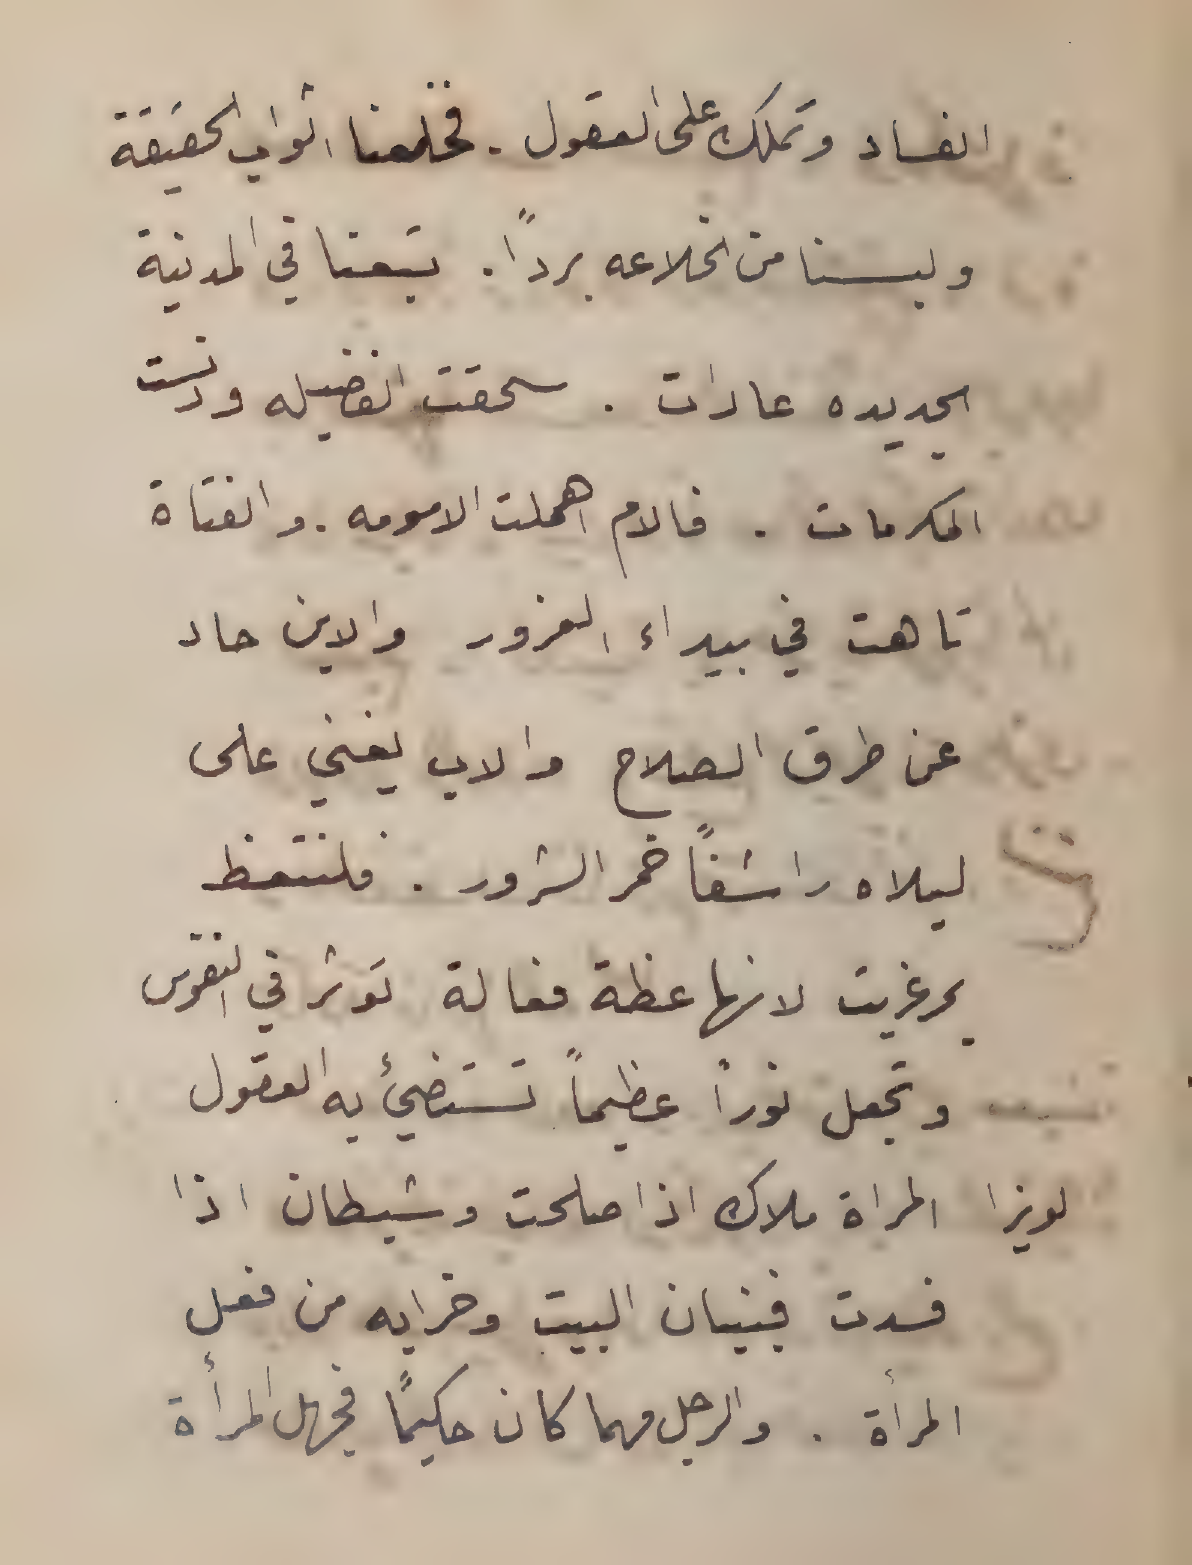 الفساد وتملك على العقول . فخلعنا اثواب الحقيقة
ولبسنا من الخلاعه برداً . تبعنا في المدنية
الجديده عادات . سحقت الفضيله ودنست
المكرمات . فالام اهملت الامومه . والفتاة
تاهت في بيداء الغرور والابن حاد
عن طرق الصلاح والاب يغني على
ليلاه راشفاً خمر الشرور . فلنتعظ
لانها عظة فعالة تؤثر في النفوس
وتجعل نوراً عظيماً تستضيئ به العقول
لويزا المراة ملاك اذا صلحت وشيطان اذا
فسدت فبنيان البيت وخرابه من فعل
المرأة . والرجل مهما كان حكيمًا فجهل المرأة